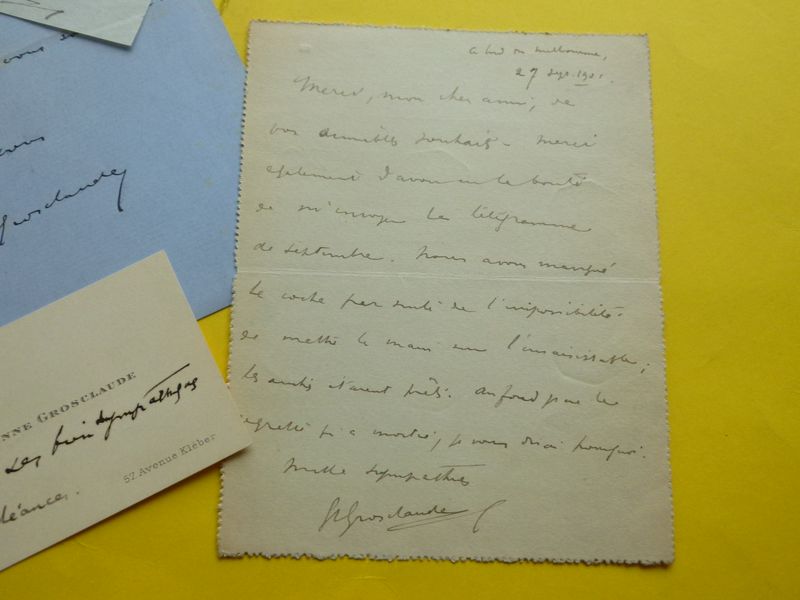 vous
Grosclaude
NNE GROSCLAUDE
ses bien sympathiques
57 Avenue Kléber
à bord du Melbourne,
27 Sept. 1901.
Merci, mon cher ami, de
vos aimables souhaits. Merci
également d'avoir eu la bonté
de m'envoyer le télégramme
de septembre. Nous avons manqué
le coche par suite de l'impossibilité
de mettre la main sur l'insaisissable;
les autres étaient prêts. Au fond je ne le
regrette qu'à moitié, je vous dirai pourquoi.
Mille sympathies
Grosclaude